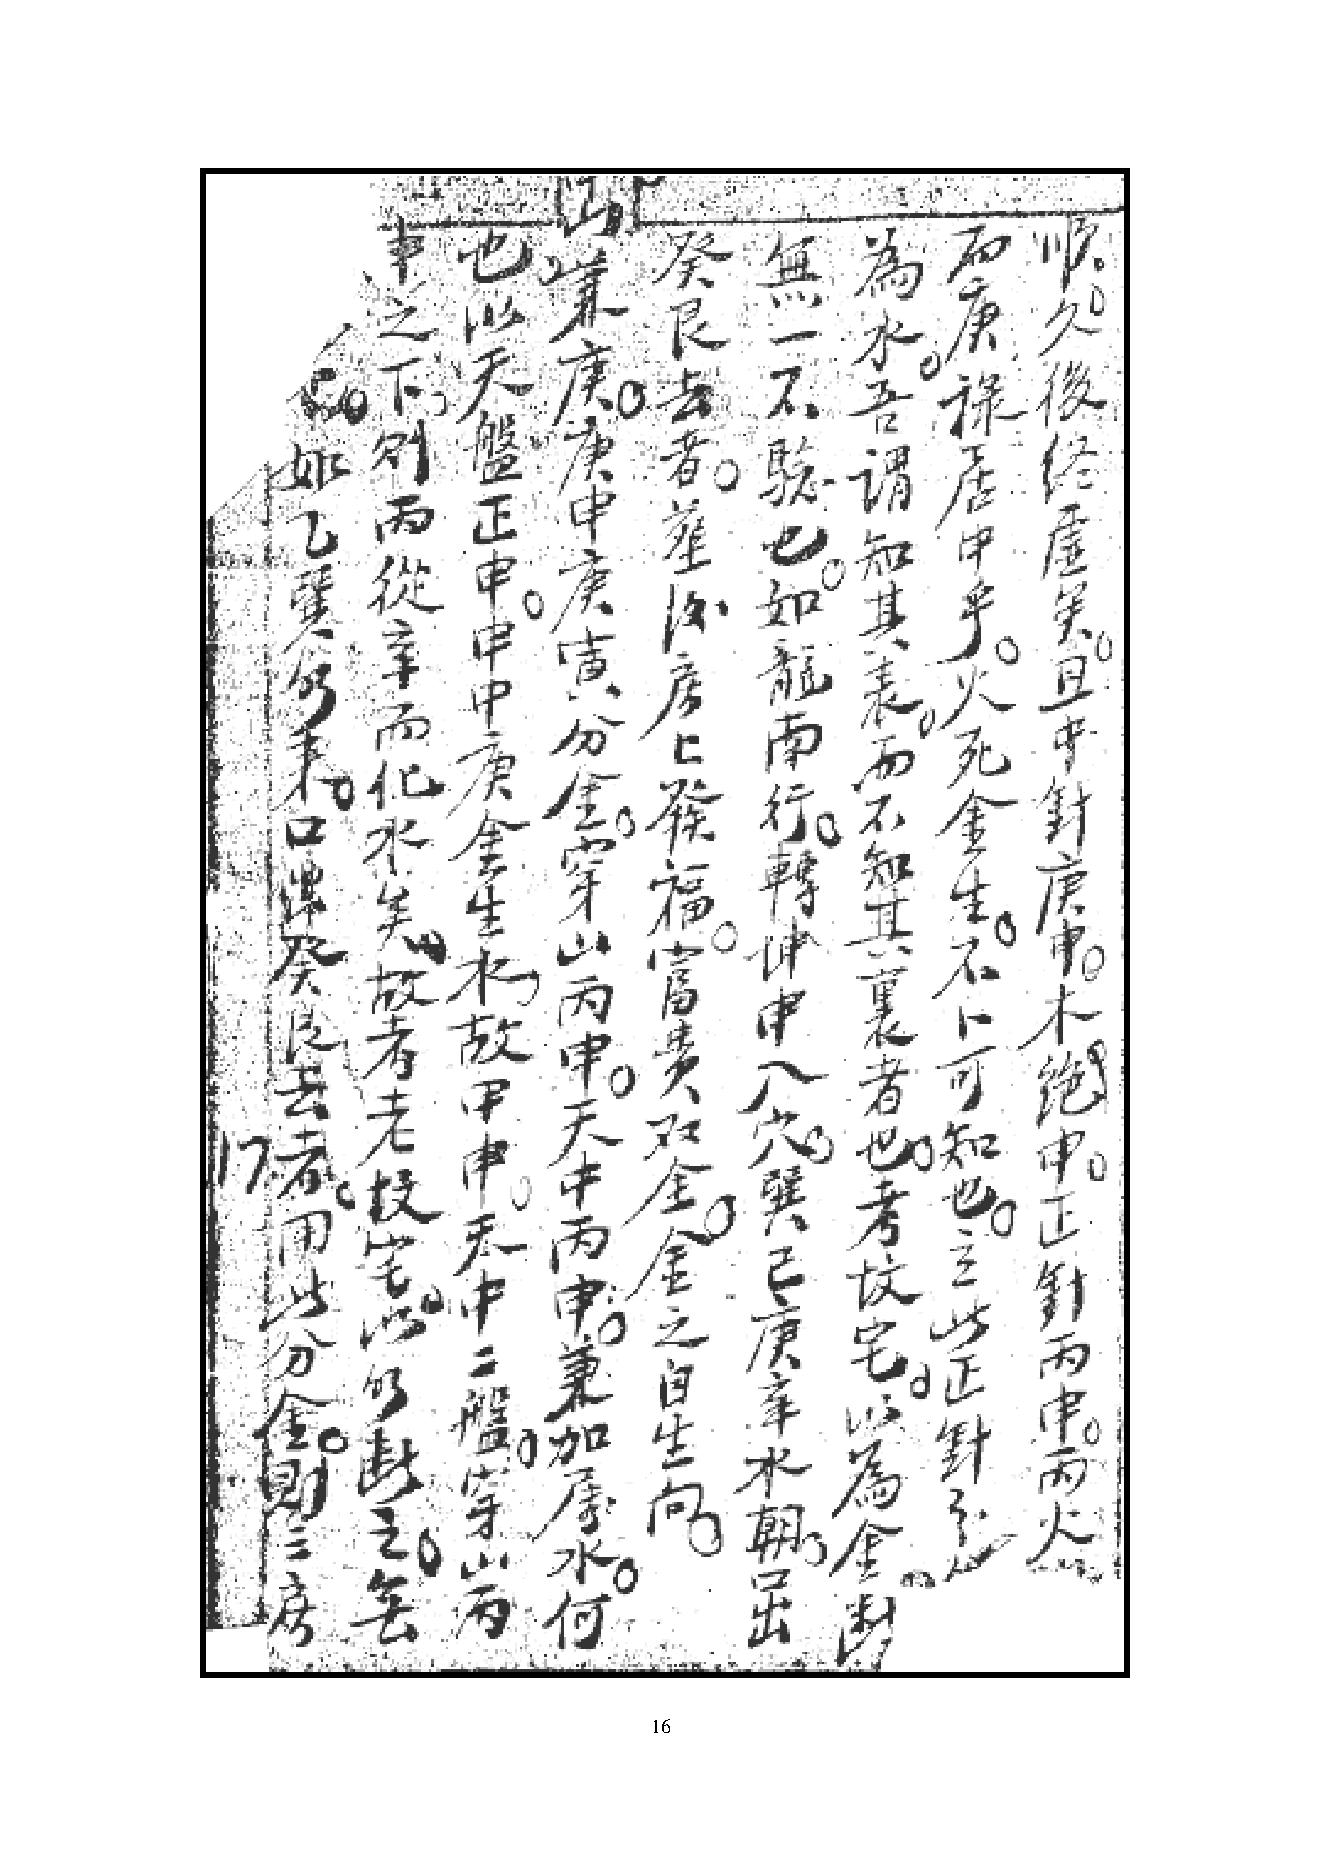 順久後終虛矣且中針庚申木絕申正針丙申丙火
而庚祿居申乎火死金生不卜可知也立此正針分
為水吾謂知其表而不知其裏者也考坟宅以為金斷
無一不驗也如龍南行轉坤申入穴巽巳庚辛水朝出
癸艮去者葬後房上發福富貴双全金之自生向
山兼庚庚申庚寅分金穿山丙申天中丙申兼加屬水何
也以天盤正申申甲庚金生水故甲申天中二盤穿山丙
申之下則丙從辛而化水矣故者老坟宅以的斷之無
如乙巽的來口癸艮去者用此分金則三房
17
16